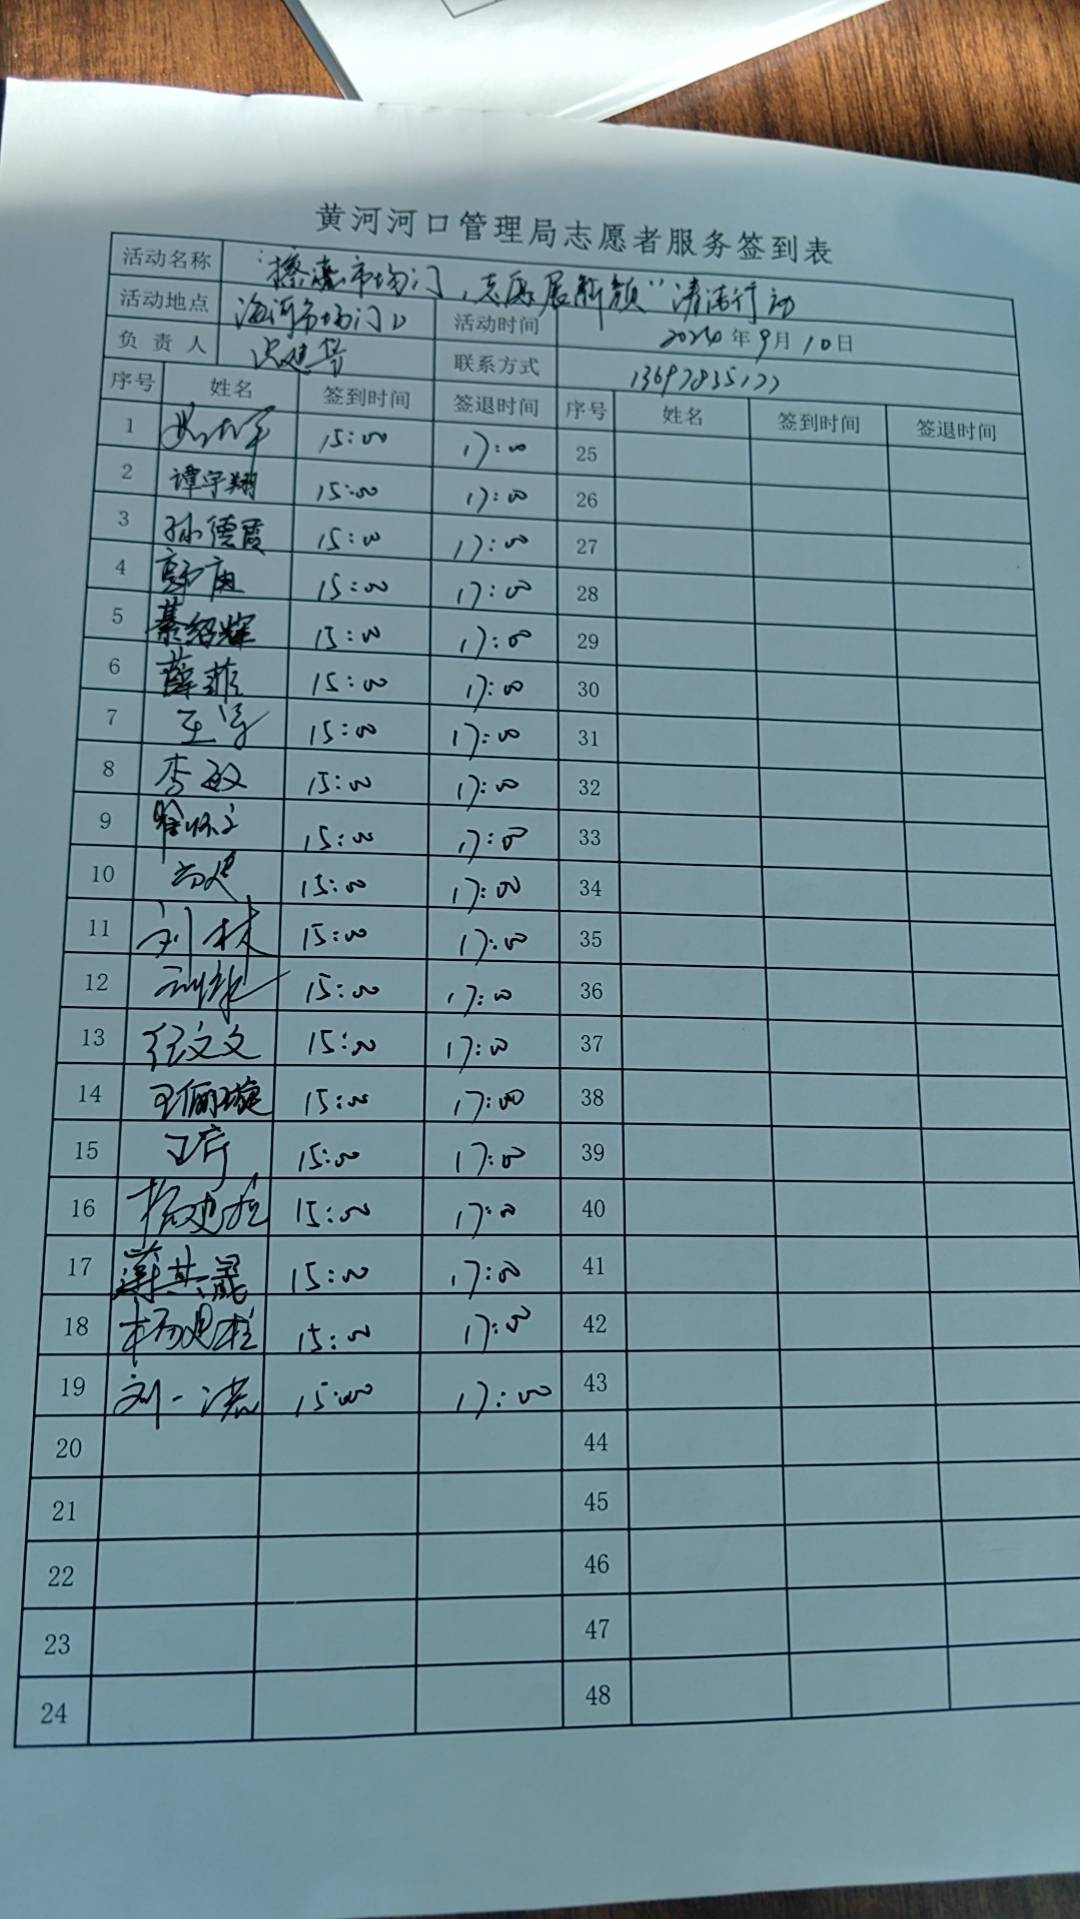 黄河河口管理局志愿者服务签到表
活动名称 "擦亮市场门，志愿展新颜"清洁行动
活动地点 海河市场门口 活动时间 2024年9月10日
负责人 联系方式
序号 姓名 签到时间 签退时间 序号 姓名 签到时间 签退时间
1 15:00 17:00 25
2 谭宇翔 15:00 17:00 26
3 孙德霞 15:00 17:00 27
4 15:00 17:00 28
5 綦绍辉 15:00 17:00 29
6 薛菲 15:00 17:00 30
7 15:00 17:00 31
8 李敏 15:00 17:00 32
9 15:00 17:00 33
10 尚建 15:00 17:00 34
11 刘林 15:00 17:00 35
12 15:00 17:00 36
13 任文文 15:00 17:00 37
14 王俪璇 15:00 17:00 38
15 15:00 17:00 39
16 15:00 17:00 40
17 15:00 17:00 41
18 15:00 17:00 42
19 15:00 17:00 43
20 44
21 45
22 46
23 47
24 48